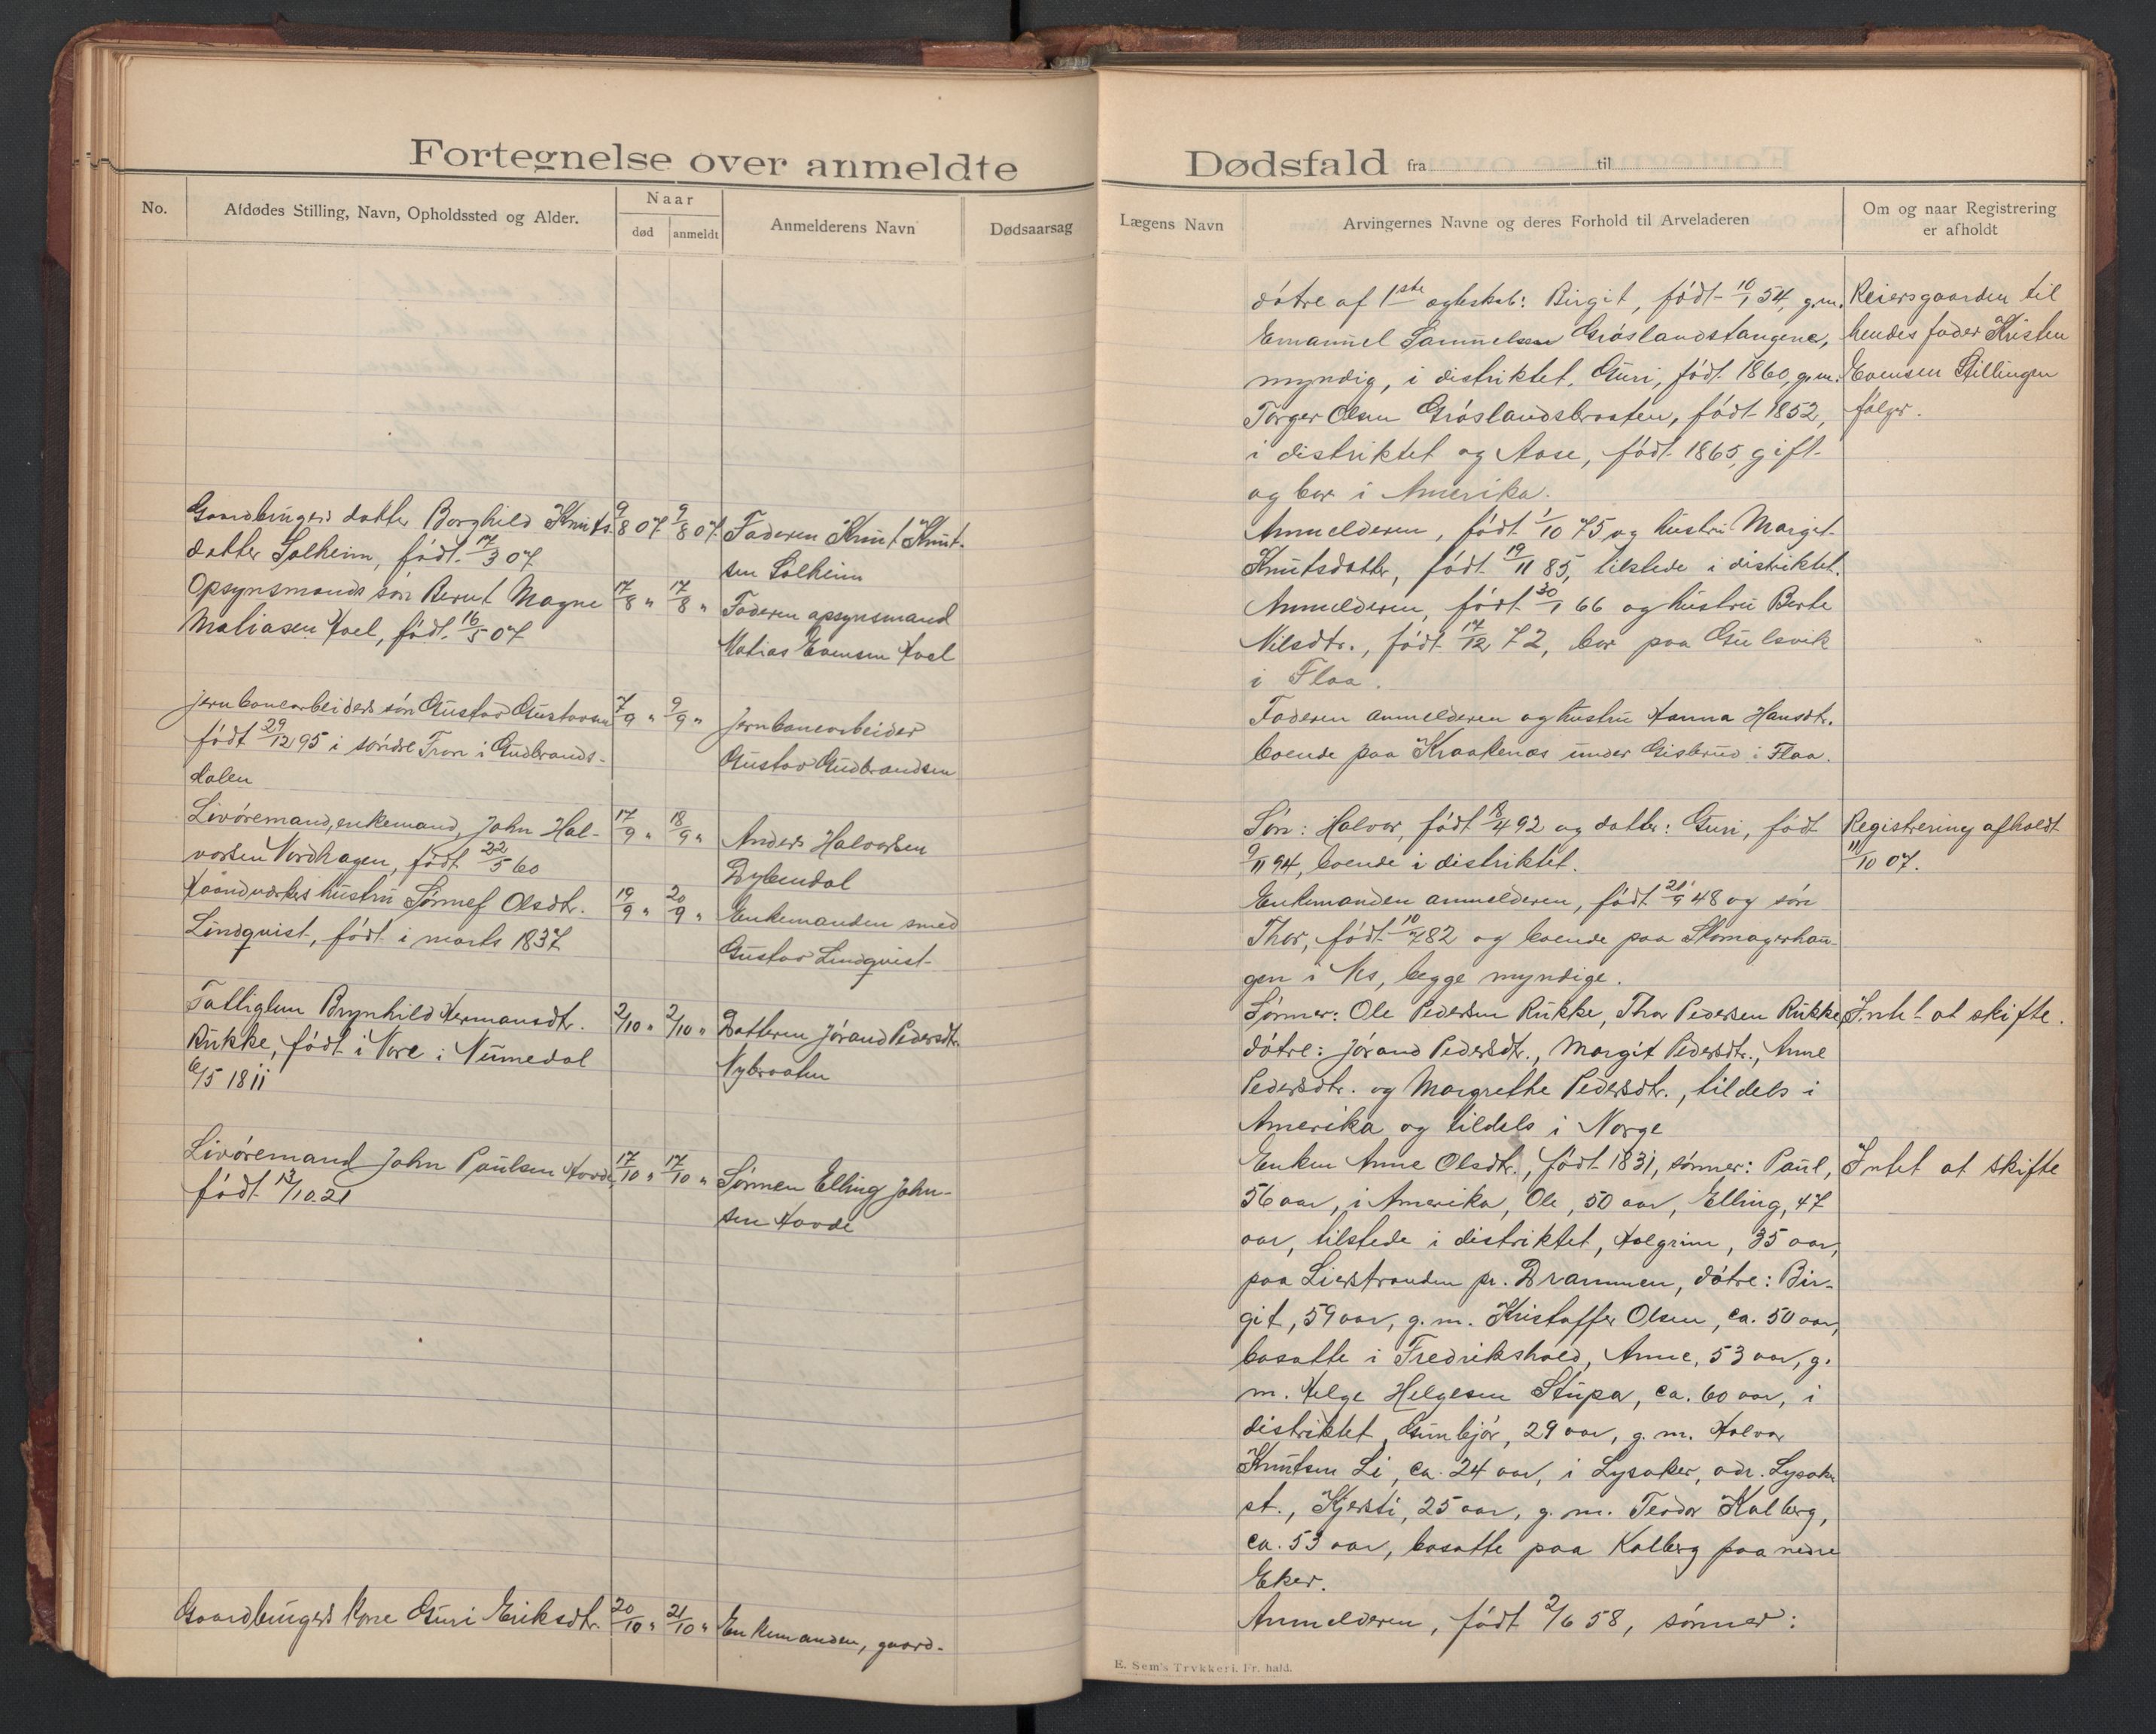 Fortegnelse over anmeldte
No.
Afdødes Stilling, Navn, Opholdssted og Alder.
Naar
død
anmeldt
Anmelderens Navn
Dødsaarsag
Gaardbrugers datter Borghild Knuts-
datter Solheim, født 17/3 07
9/8 07
9/8 07
Faderen Knut Knut-
sen Solheim
Opsynsmands søn Bernt Magne
Matiasen Hoel, født 16/5 07
17/8 "
17/8 "
Faderen opsynsmand
Matias Evensen Hoel
Jernbanearbeiders søn Gustav Gustavsen
født 29/12 95 i søndre Fron i Gudbrands-
dalen
7/9 "
9/9 "
Jernbanearbeider
Gustav Gudbrandsen
Livøremand, enkemand, John Hal-
vorsen Nordhagen, født 22/5 60
17/9 "
18/9 "
Anders Halvorsen
Dybendal
Haandværkers hustru Sønnef Olsdtr.
Lindqvist, født i marts 1837
19/9 "
20/9 "
Enkemanden smed
Gustav Lindqvist
Fattiglem Brynhild Hermansdtr.
Rukke, født i Nore i Numedal
6/5 1811
2/10 "
2/10 "
Datteren Jørand Pedersdtr.
Nybraaten
Livøremand John Paulsen Hovde,
født 13/10 21
17/10 "
17/10 "
Sønnen Elling John-
sen Hovde
Gaardbrugers kone Guri Eriksdtr.
20/10 "
21/10 "
Enkemanden, gaard-
Dødsfald fra til
Lægens Navn
Arvingernes Navne og deres Forhold til Arveladeren
Om og naar Registrering
er afholdt
døtre af 1ste ægteskab: Birgit, født 10/1 54, g.m.
Emanuel Samuelsen Grøslandstangene,
myndig, i distriktet, Guri, født 1860, g.m.
Torger Olsen Grøslandsbraaten, født 1852,
i distriktet og Aase, født 1865, gift
og bor i Amerika.
Reiersgaarden til
hendes fader Kristen
Evensen Stillingen
følger.
Anmelderen, født 1/10 75 og hustru Margit
Knutsdatter, født 19/11 85, tilstede i distriktet.
Anmelderen, født 30/1 66 og hustru Berte
Nilsdtr., født 17/12 72, bor paa Gulsvik
i Flaa.
Faderen anmelderen og hustru Hanna Hansdtr.
boende paa Kraakenæs under Gislerud i Flaa.
Søn: Halvor, født 18/4 92 og datter: Guri, født
9/11 94, boende i distriktet.
Registrering afholdt
11/10 07.
Enkemanden anmelderen, født 21/9 48 og søn
Thor, født 10/7 82 og boende paa Skomagerhau-
gen i Nes, begge myndige.
Sønner: Ole Pedersen Rukke, Thor Pedersen Rukke
døtre: Jørand Pedersdtr., Margit Pedersdtr., Anne
Pedersdtr. og Margrethe Pedersdtr., tildels i
Amerika og tildels i Norge
Intet at skifte.
Enken Anne Olsdtr., født 1831, sønner: Paul,
56 aar, i Amerika, Ole, 50 aar, Elling, 47
aar, tilstede i distriktet, Halgrim, 35 aar,
paa Lierstranden pr. Drammen, døtre: Bir-
git, 59 aar, g.m. Kristoffer Olsen, ca. 50 aar,
bosatte i Fredrikshald, Anne, 53 aar, g.
m. Helge Helgesen Stupa, ca. 60 aar, i
distriktet, Gunbjør, 29 aar, g.m. Halvor
Knutsen Li, ca. 24 aar, i Lysaker, adr. Lysaker
st., Kjersti, 25 aar, g.m. Teodor Kalberg,
ca. 53 aar, bosatte paa Kalberg paa nedre
Eker.
Intet at skifte
Anmelderen, født 2/6 58, sønner:
E. Sem's Trykkeri. Fr. hald.